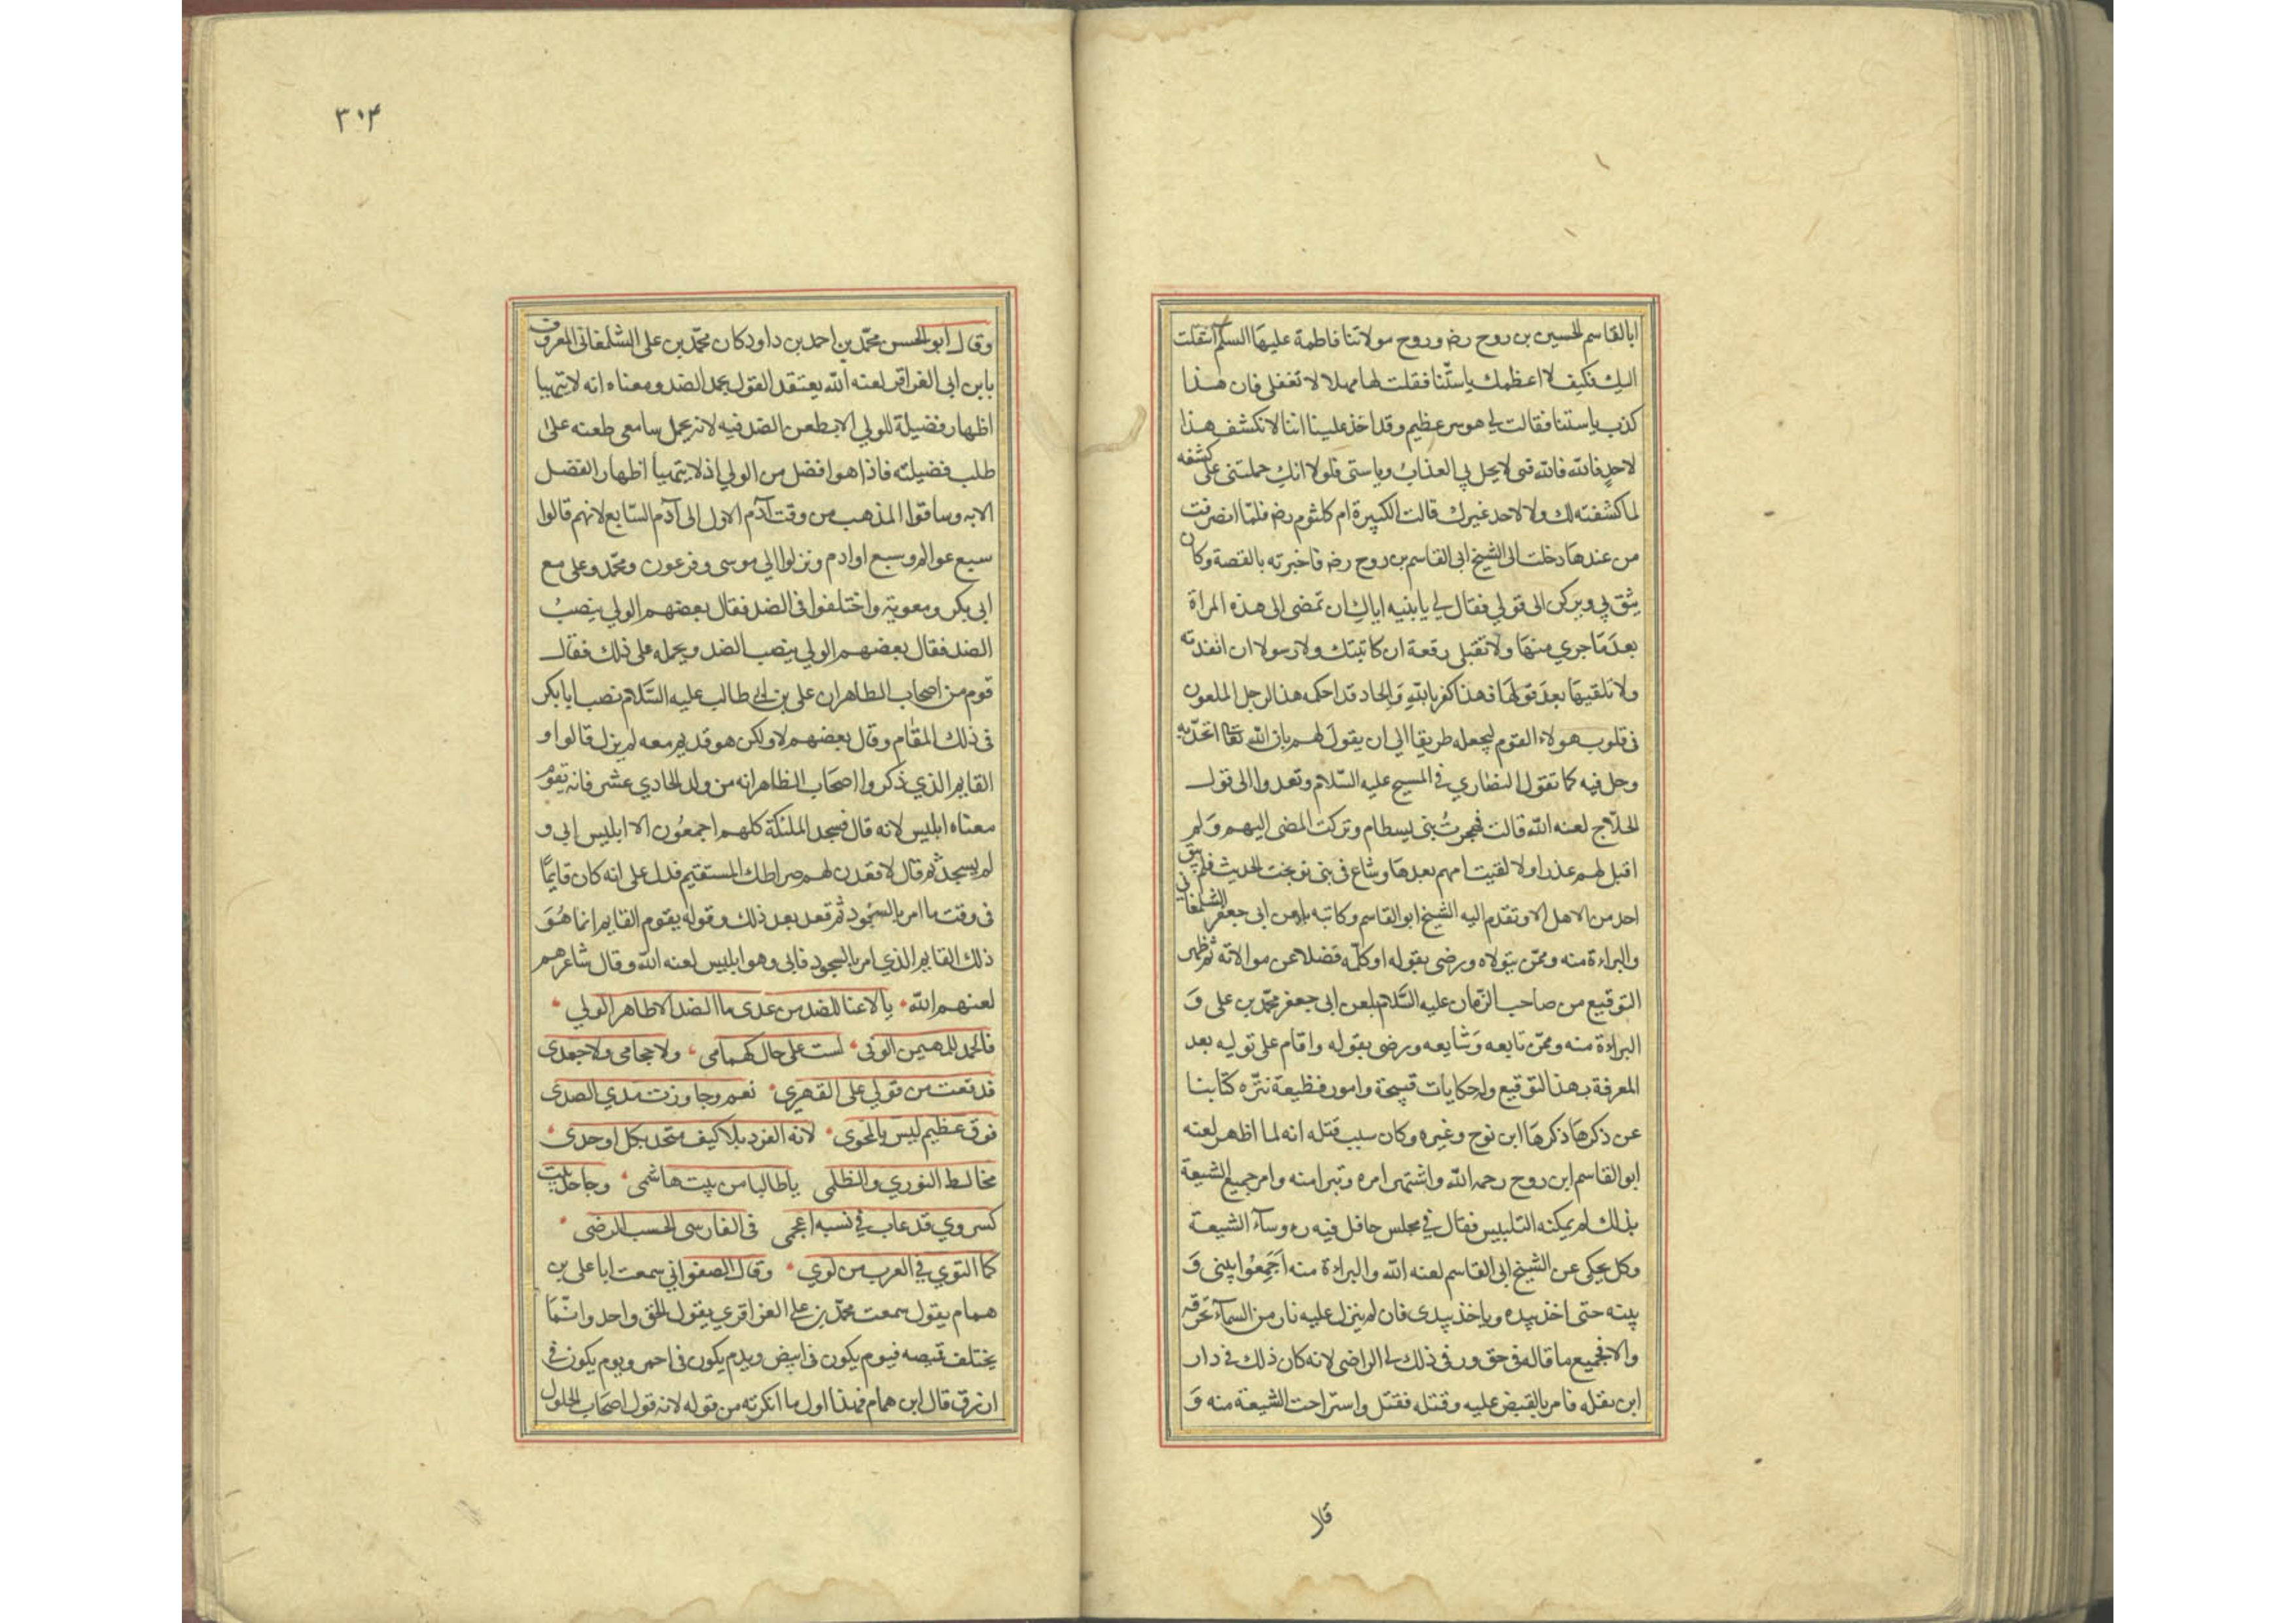 ابا القاسم الحسين بن روح رضه وروح مولاتنا فاطمة عليها السلم انتقلت
اليك فكيف لا اعظمك ياستّنا فقلت لها مهلا لا تفعلى فان هذا
كذب ياستنا فقالت لي هو سر عظيم وقد اخذ علينا اننا لا نكشف هذا
لاحدٍ فالله فالله فى لا يحل بي العذاب وياستى فلولا انك حملتنى على كشفه
لما كشفته لك ولا لاحد غيرك قالت الكبيرة ام كلثوم رضه فلمّا انصرفت
من عندها دخلت الى الشيخ ابى القاسم بن روح رضه فاخبرته بالقصة وكان
يثق بي ويركن الى قولي فقال لي يا بنيه اياك ان تمضى الى هذه المراة
بعد ما جري منها ولا تقبلى رقعة ان كاتبتك ولا رسولا ان انفذته
ولا تلقيها بعد قولها فهذا كفر بالله والحاد قد احكمه هذا الرجل الملعون
فى قلوب هولاء القوم ليجعله طريقا الى ان يقول لهم بان الله تعا اتحد به
وحل فيه كما تقول النصاري في المسيح عليه السّلام وتعدوا الى قول
الحلّاج لعنه الله قالت فهجرت بنى بسطام وتركت المضى اليهم ولم
اقبل لهم عذرا ولا لقيت امهم بعدها وشاع فى بنى نوبخت الحديث فلم يبق
احد من الاهل الا وتقدم اليه الشيخ ابو القاسم وكاتبه بلعن ابى جعفر الشلمغاني
والبراءة منه وممّن يتولاه ورضى بقوله او كلّمه فضلا عن موالاته ثم ظهر
التوقيع من صاحب الزمان عليه السَّلام بلعن ابى جعفر محمّد بن على وَ
البراءة منه وممّن تابعه وَشايعه ورضى بقوله واقام على توليه بعد
المعرفة بهذا التوقيع وله حكايات قبيحة وامور فظيعة ننزّه كتابنا
عن ذكرها ذكرها ابن نوح وغيره وكان سبب قتله انه لما اظهر لعنه
ابو القاسم ابن روح رحمه الله واشتهر امره وتبرا منه وامر جميع الشيعة
بذلك لم يمكنه التلبيس فقال في مجلس حافل فيه روسآء الشيعة
وكل يحكى عن الشيخ ابى القاسم لعنه الله والبراءة منه اَجمَعُوا بينى وَ
بينه حتى اخذ بيده وياخذ بيدى فان لم ينزل عليه نار من السمآء تحرقه
والا فجميع ما قاله فى حق ورقى ذلك الى الراضى لانه كان ذلك في دار
ابن مقله فامر بالقبض عليه وقتله فقتل واستراحت الشيعة منه وَ
قال
٣٠٤
وقال ابو الحسن محمّد بن احمد بن داود كان محمّد بن على الشلمغانى المعروف
بابن ابى العزاقر لعنه الله يعتقد القول بحمل الضد ومعناه انه لا يتهيا
اظهار فضيلة للولي الا بطعن الضد فيه لانه يحمل سامعى طعنه على
طلب فضيلته فاذا هو افضل من الولي اذ لا يتهيأ اظهار الفضل
الا به وساقوا المذهب من وقت آدم الاول الى آدم السّابع لانهم قالوا
سبع عوالم وسبع اوادم ونزلوا الي موسى وفرعون ومحمّد وعلى مع
ابى بكر ومعوية واختلفوا فى الضد فقال بعضهم الولي ينصب
الضد فقال بعضهم الولي ينصب الضد ويحمله على ذلك فقال
قوم من اصحاب الظاهر ان على بن ابى طالب عليه السَّلام نصب ابا بكر
فى ذلك المقام وقال بعضهم لا ولكن هو قديم معه لم يزل قالوا و
القايم الذي ذكروا اصحاب الظاهر انه من ولد الحادي عشر فانه يقوم
معناه ابليس لانه قال فسجد الملئكة كلهم اجمعُون الا ابليس ابى و
لم يسجد ثم قال لاقعدن لهم صراطك المستقيم فدل على انه كان قايمًا
فى وقت ما امر بالسجُود ثم قعد بعد ذلك وقوله يقوم القايم انما هُوَ
ذلك القايم الذي امر بالسجود فابى وهو ابليس لعنه الله وقال شاعرهم
لعنهم الله يا لاعنا للضد من عدى ما الضد الا ظاهر الولي
فالحمد للمهيمن الوفى لست على حال كهمامى ولا حجامى ولا جعدى
قد فقت من قولي على الفهري نعم وجاوزت مدي الصدى
فوق عظيم ليس بالمجوى لانه الفرد بلا كيف متحد بكل اوحدى
مخالط النوري والظلمى يا طالبا من بيت هاشمى وجاحد بيت
كسروي قد غاب في نسبه اعجمى فى الفارسى الحسب الرضى
كما التوي في العرب من لوي وقال الصفوانى سمعت ابا على بن
همام يقول سمعت محمّد بن على العزاقري يقول الحق واحد وانّما
يختلف قميصه فيوم يكون فى ابيض ويوم يكون فى احمر ويوم يكون في
ازرق قال ابن همام فهذا اول ما انكرته من قوله لانه قول اصحاب الحلول